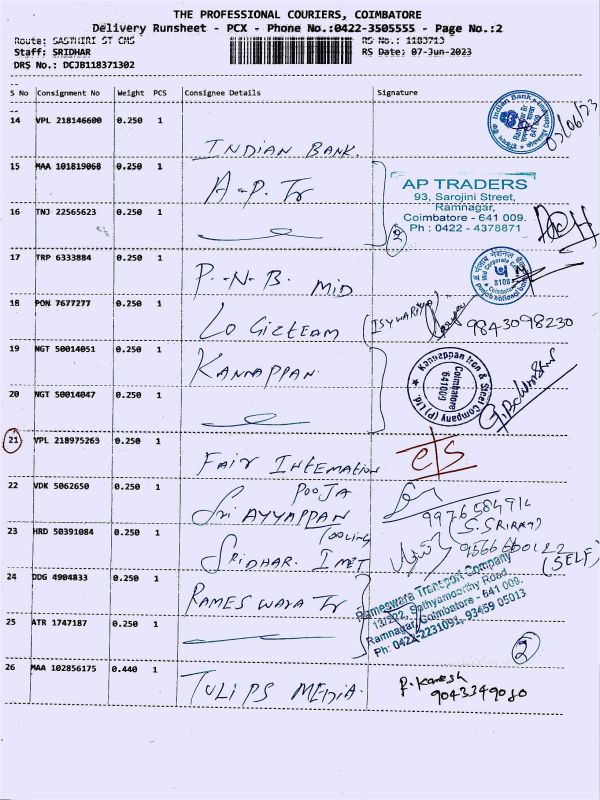 THE PROFESSIONAL COURIERS, COIMBATORE
Delivery Runsheet - PCX - Phone No.:0422-3505555 - Page No.:2
Route: SASTHIRI ST CMS RS No.: 1183713
Staff: SRIDHAR RS Date: 07-Jun-2023
DRS No.: DCJB118371302
S No Consignment No Weight PCS Consignee Details Signature
14 VPL 218146600 0.250 1
INDIAN BANK.
15 MAA 101819068 0.250 1
A-P. Tr
AP TRADERS
93, Sarojini Street,
Ramnagar,
Coimbatore - 641 009.
Ph : 0422 - 4378871
16 TNJ 22565623 0.250 1
17 TRP 6333884 0.250 1
P-N-B. MID
18 PON 7677277 1
LOGIZTEAM
9843098230
19 NGT 50014051 0.250 1
KANNAPPAN.
Kannappan Iron & Steel Company (P) Ltd.
Coimbatore
641009
20 NGT 50014047 0.250 1
21 VPL 218975263 0.250 1
FAIR INTERNATION
22 VDK 5062650 0.250 1
POOJA
SRI AYYAPPAN
(S.SRIRAM)
23 HRD 50391084 0.250 1
TOOLING
SRIDHAR. IMET
(SELF)
24 DDG 4904833 0.250 1
RAMESWARA Tr
Rameswara Transport Company
13/202, Sathyamoorthy Road,
Ramnagar, Coimbatore - 641 009.
Ph: 0422-2231091, 93459 05013
25 ATR 1747187 0.250 1
2
26 MAA 102856175 0.440 1
TULIPS MEDIA.
P. Kamesh
9043349080